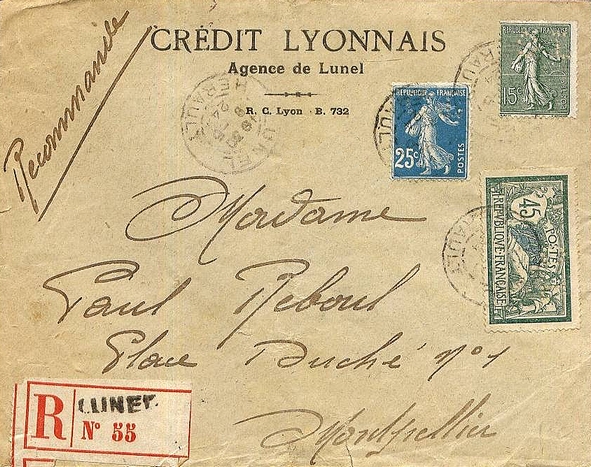 Recommandée
CRÉDIT LYONNAIS
Agence de Lunel
R. C. Lyon B. 732
REPUBLIQUE FRANÇAISE
25c
POSTES
15c
45c
POSTES
REPUBLIQUE FRANÇAISE
LUNEL
HERAULT
Madame
Paul Reboul
Place Duché N°1
Montpellier
R
LUNEL
N° 55